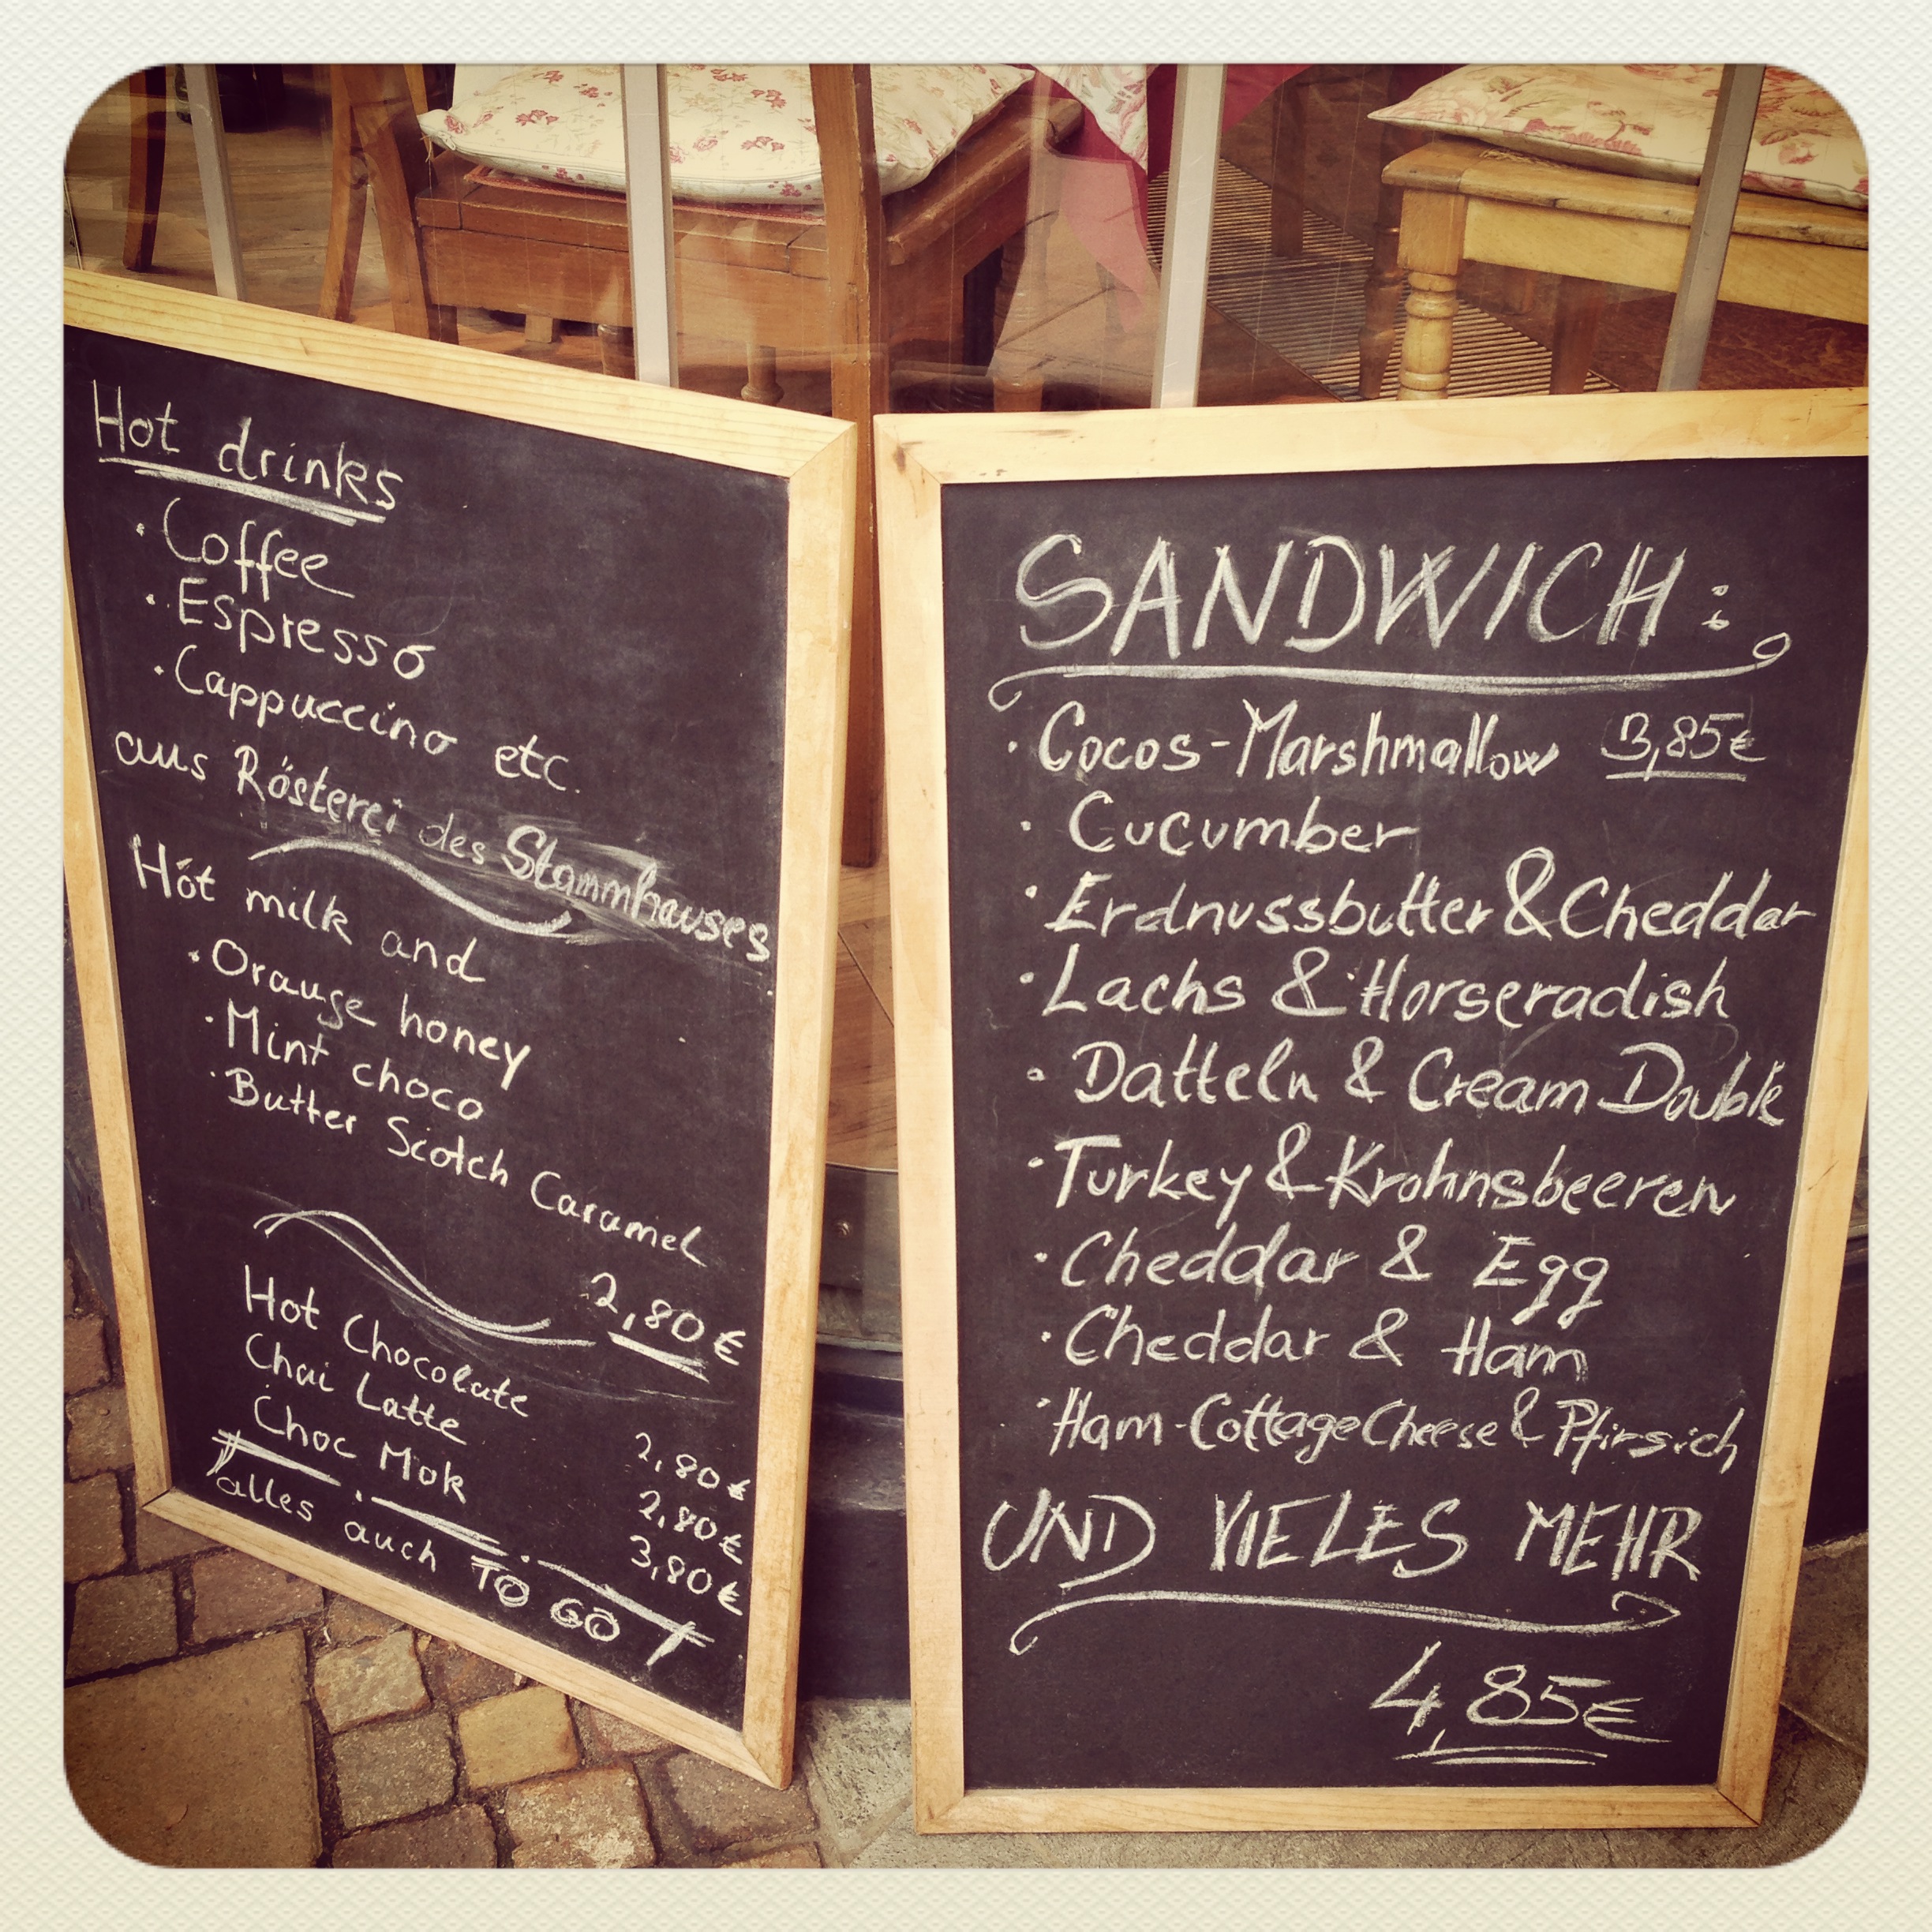 Hot drinks
· Coffee
· Espresso
· Cappuccino etc.
aus Rösterei des Stammhauses
Hot milk and
· Orange honey
· Mint choco
· Butter Scotch Caramel
2,80 €
Hot Chocolate 2,80 €
Chai Latte 2,80 €
Choc Mok 3,80 €
alles auch TO GO!
SANDWICH:
· Cocos-Marshmallow 3,85€
· Cucumber
· Erdnussbutter & Cheddar
· Lachs & Horseradish
· Datteln & Cream Double
· Turkey & Krohnsbeeren
· Cheddar & Egg
· Cheddar & Ham
· Ham-Cottage Cheese & Pfirsich
UND VIELES MEHR
4,85€